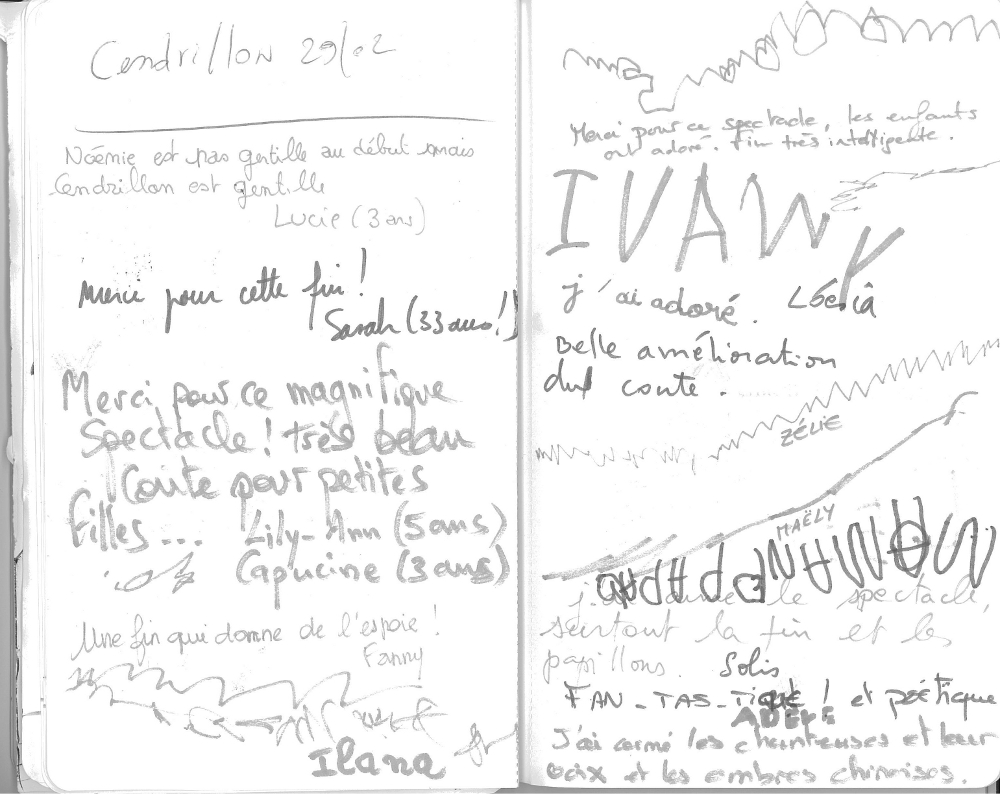 Cendrillon 29/02
Noémie est pas gentille au début mais
Cendrillon est gentille
Lucie (3 ans)
Merci pour cette fin !
Sarah (33 ans !)
Merci pour ce magnifique
Spectacle ! très beau
Conte pour petites
filles ... Lily-Ann (5 ans)
Capucine (3 ans)
Une fin qui donne de l'espoie !
Fanny
Ilana
Merci pour ce spectacle, les enfants
ont adoré. Fin très intelligente.
IVAN
j'ai adoré.
Belle amélioration
du conte.
ZÉLIE
MAËLY
MAMAN PAPA
le spectacle,
surtout la fin et les
papillons. Solis
FAN_TAS_TiQUE ! et poétique
ADELE
J'ai aimé les chanteuses et leur
voix et les ombres chinoises.